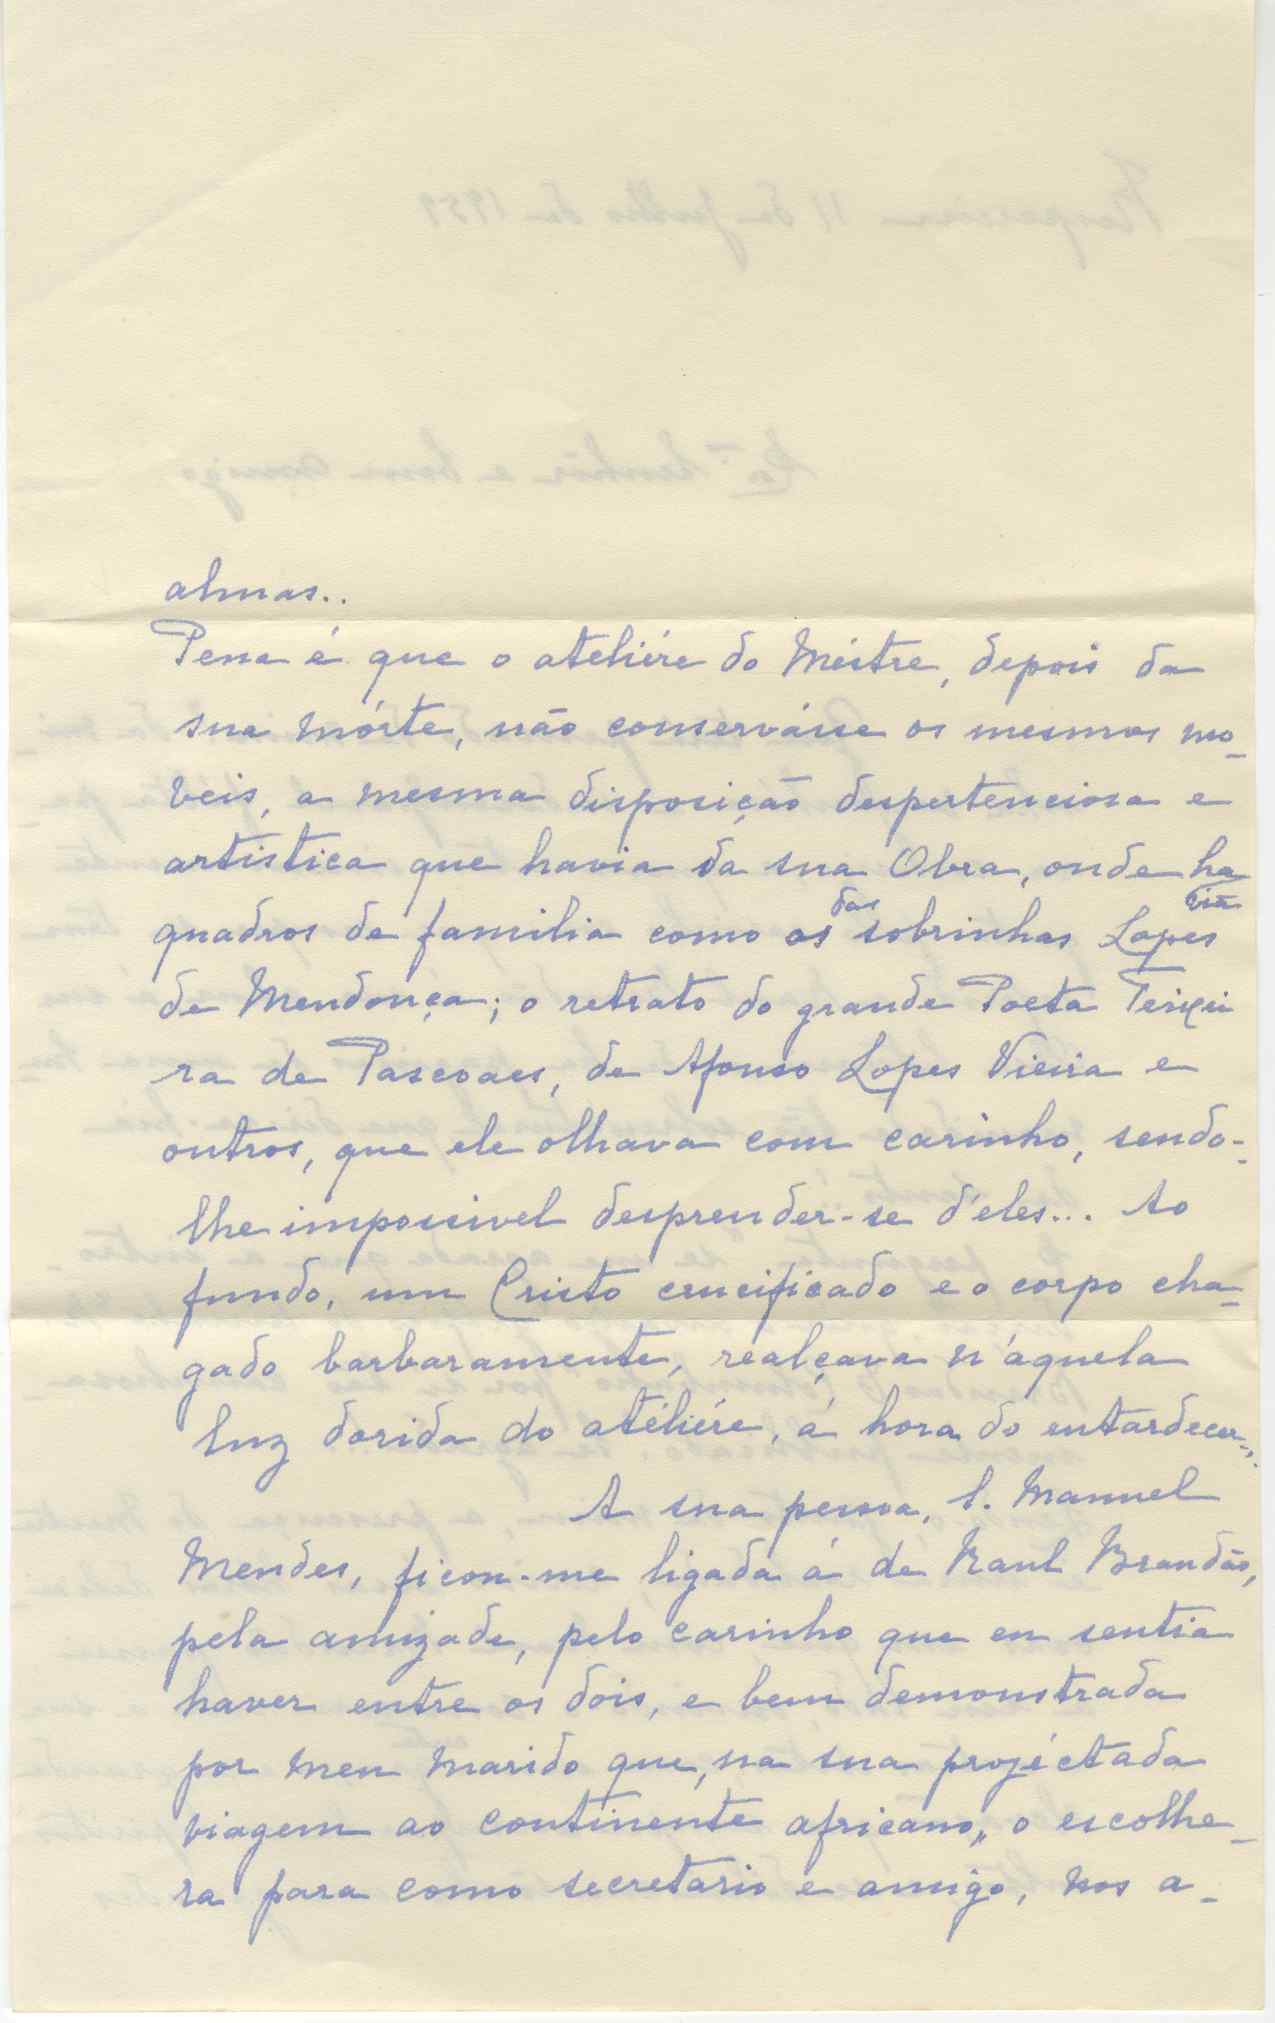 almas..
Pena é que o ateliére do Méstre, depois da
sua mórte, não conservásse os mesmos mo-
veis, a mesma disposição despertenciosa e
artistica que havia da sua Obra, onde havia
quadros de familia como os das sobrinhas Lopes
de Mendonça; o retrato do grande Poeta Teixei
ra de Pascoaes, de Afonso Lopes Vieira e
outros, que ele olhava com carinho, sendo-
lhe impossivel desprender-se d'eles... Ao
fundo, um Cristo crucificado e o corpo cha-
gado barbaramente, realçava n'áquela
luz dorida do atéliére, á hora do entardecer...
A sua pessoa, S. Manuel
Mendes, ficou-me ligada á de Raul Brandão,
pela amizade, pelo carinho que eu sentia
haver entre os dois, e bem demonstrada
por meu marido que, na sua projéctada
viagem ao continente africano, o escolhe-
ra para como secretario e amigo, nos a-